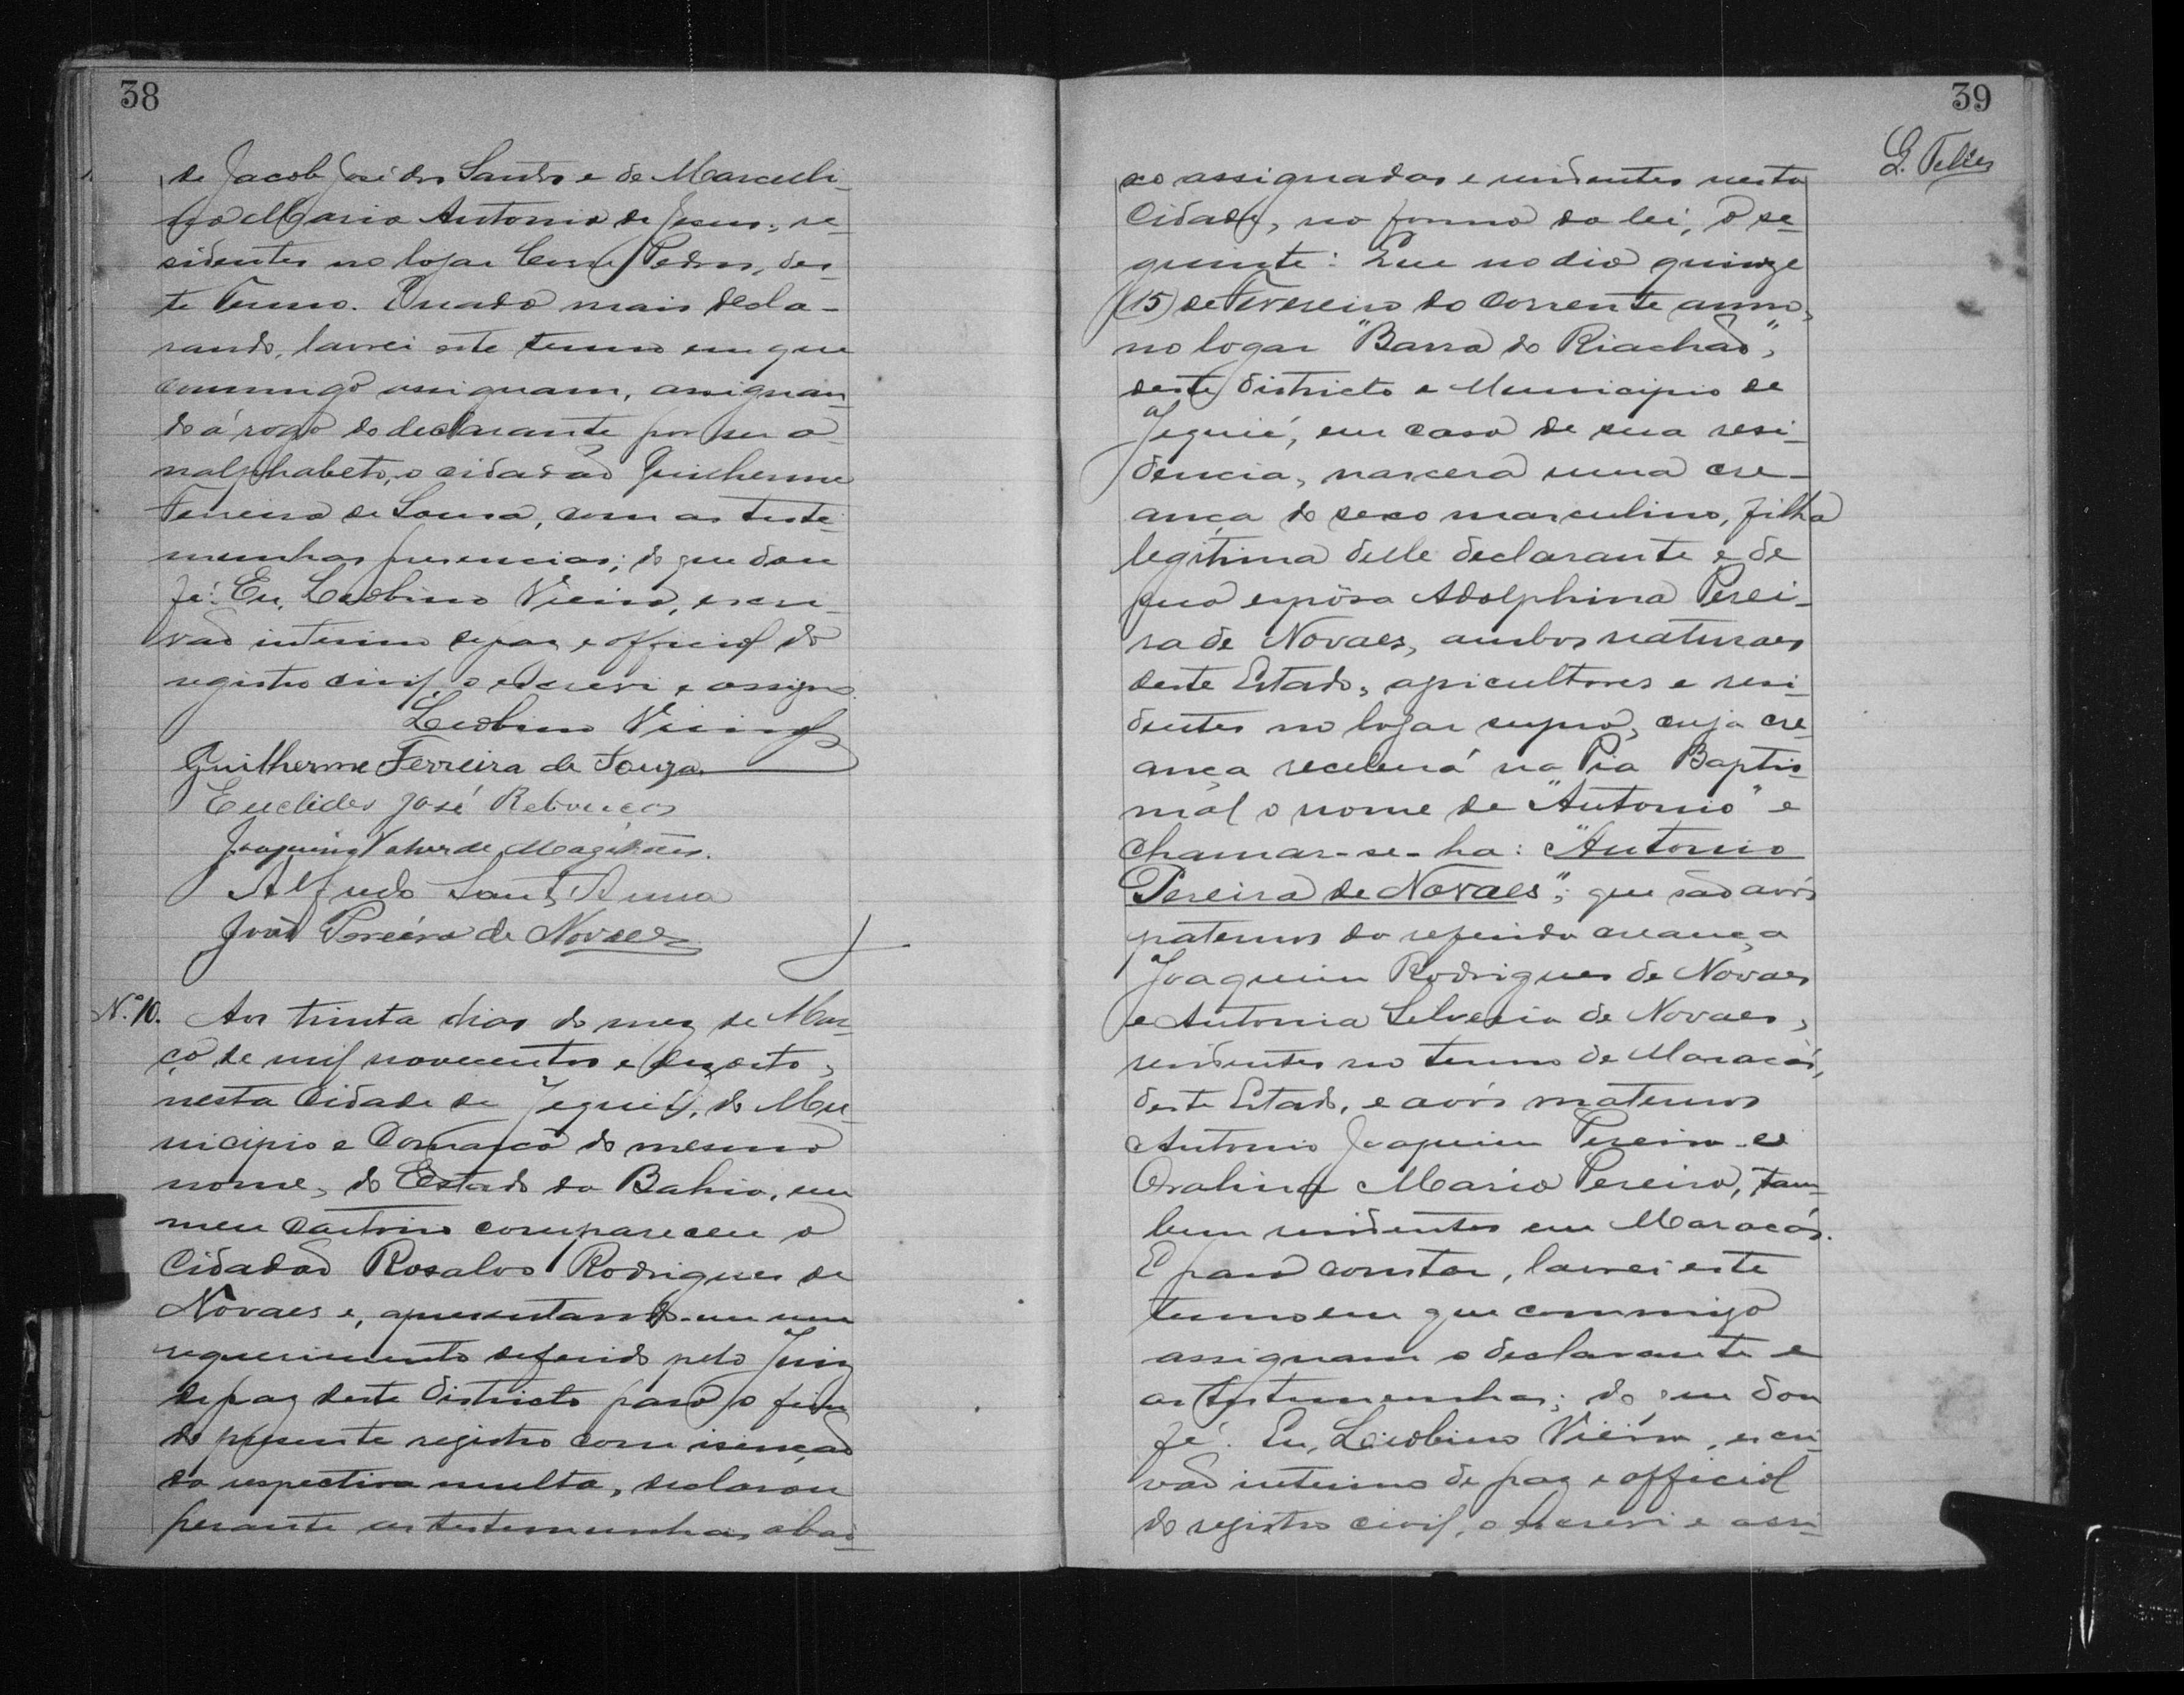 38
de Jacob José dos Santos e de Marcelli-
na Maria Antonia de Jesus, re-
sidentes no logar Pedras, des-
te Termo. E nada mais decla-
rando, lavrei este termo em que
commigo assignam, assignan-
do á rogo do declarante por ser a-
nalphabeto, o cidadão Guilherme
Ferreira de Sousa, com as teste-
munhas presenciaes; do que dou
fé. Eu, Leobino Vieira, escri-
vão interino de paz e official do
registro civil, o escrevi e assigno.
Leobino Vieira
Guilherme Ferreira de Souza
Euclides José Rebouças
Joaquim Valverde Magalhães.
Alfredo Sant'Anna
João Pereira de Novaes
N.º 10. Aos trinta dias do mez de Mar-
ço de mil novecentos e dezoito,
nesta Cidade de Jequié, do Mu-
nicipio e Comarca do mesmo
nome, do Estado da Bahia, em
meu Cartorio compareceu o
Cidadão Rosalvo Rodrigues de
Novaes e, apresentando-me um
requerimento deferido pelo Juiz
de paz deste Districto para o fim
do presente registro com isenção
da respectiva multa, declarou
perante as testemunhas abai-
39
G. Telles
xo assignadas e residentes nesta
Cidade, na forma da lei, o se-
guinte: Que no dia quinze
(15) de Fevereiro do corrente anno,
no logar "Barra do Riachão",
deste districto e Municipio de
Jequié, em casa de sua resi-
dencia, nascera uma cre-
ança do sexo masculino, filha
legitima delle declarante e de
sua espôsa Adolphina Perei-
ra de Novaes, ambos naturaes
deste Estado, agricultores e resi-
dentes no logar supra, cuja cre-
ança receberá na Pia Baptis-
mal o nome de "Antonio" e
chamar-se-ha: "Antonio
Pereira de Novaes"; que são avós
paternos da referida creança
Joaquim Rodrigues de Novaes
e Antonia Silveria de Novaes,
residentes no termo de Maracás,
deste Estado, e avós maternos
Antonio Joaquim Pereira e
Maria Pereira, tam-
bem residentes em Maracás.
E para constar, lavrei este
termo em que commigo
assignam o declarante e
as testemunhas; do que dou
fé. Eu, Leobino Vieira, escri-
vão interino de paz e official
do registro civil, o escrevi e assi-